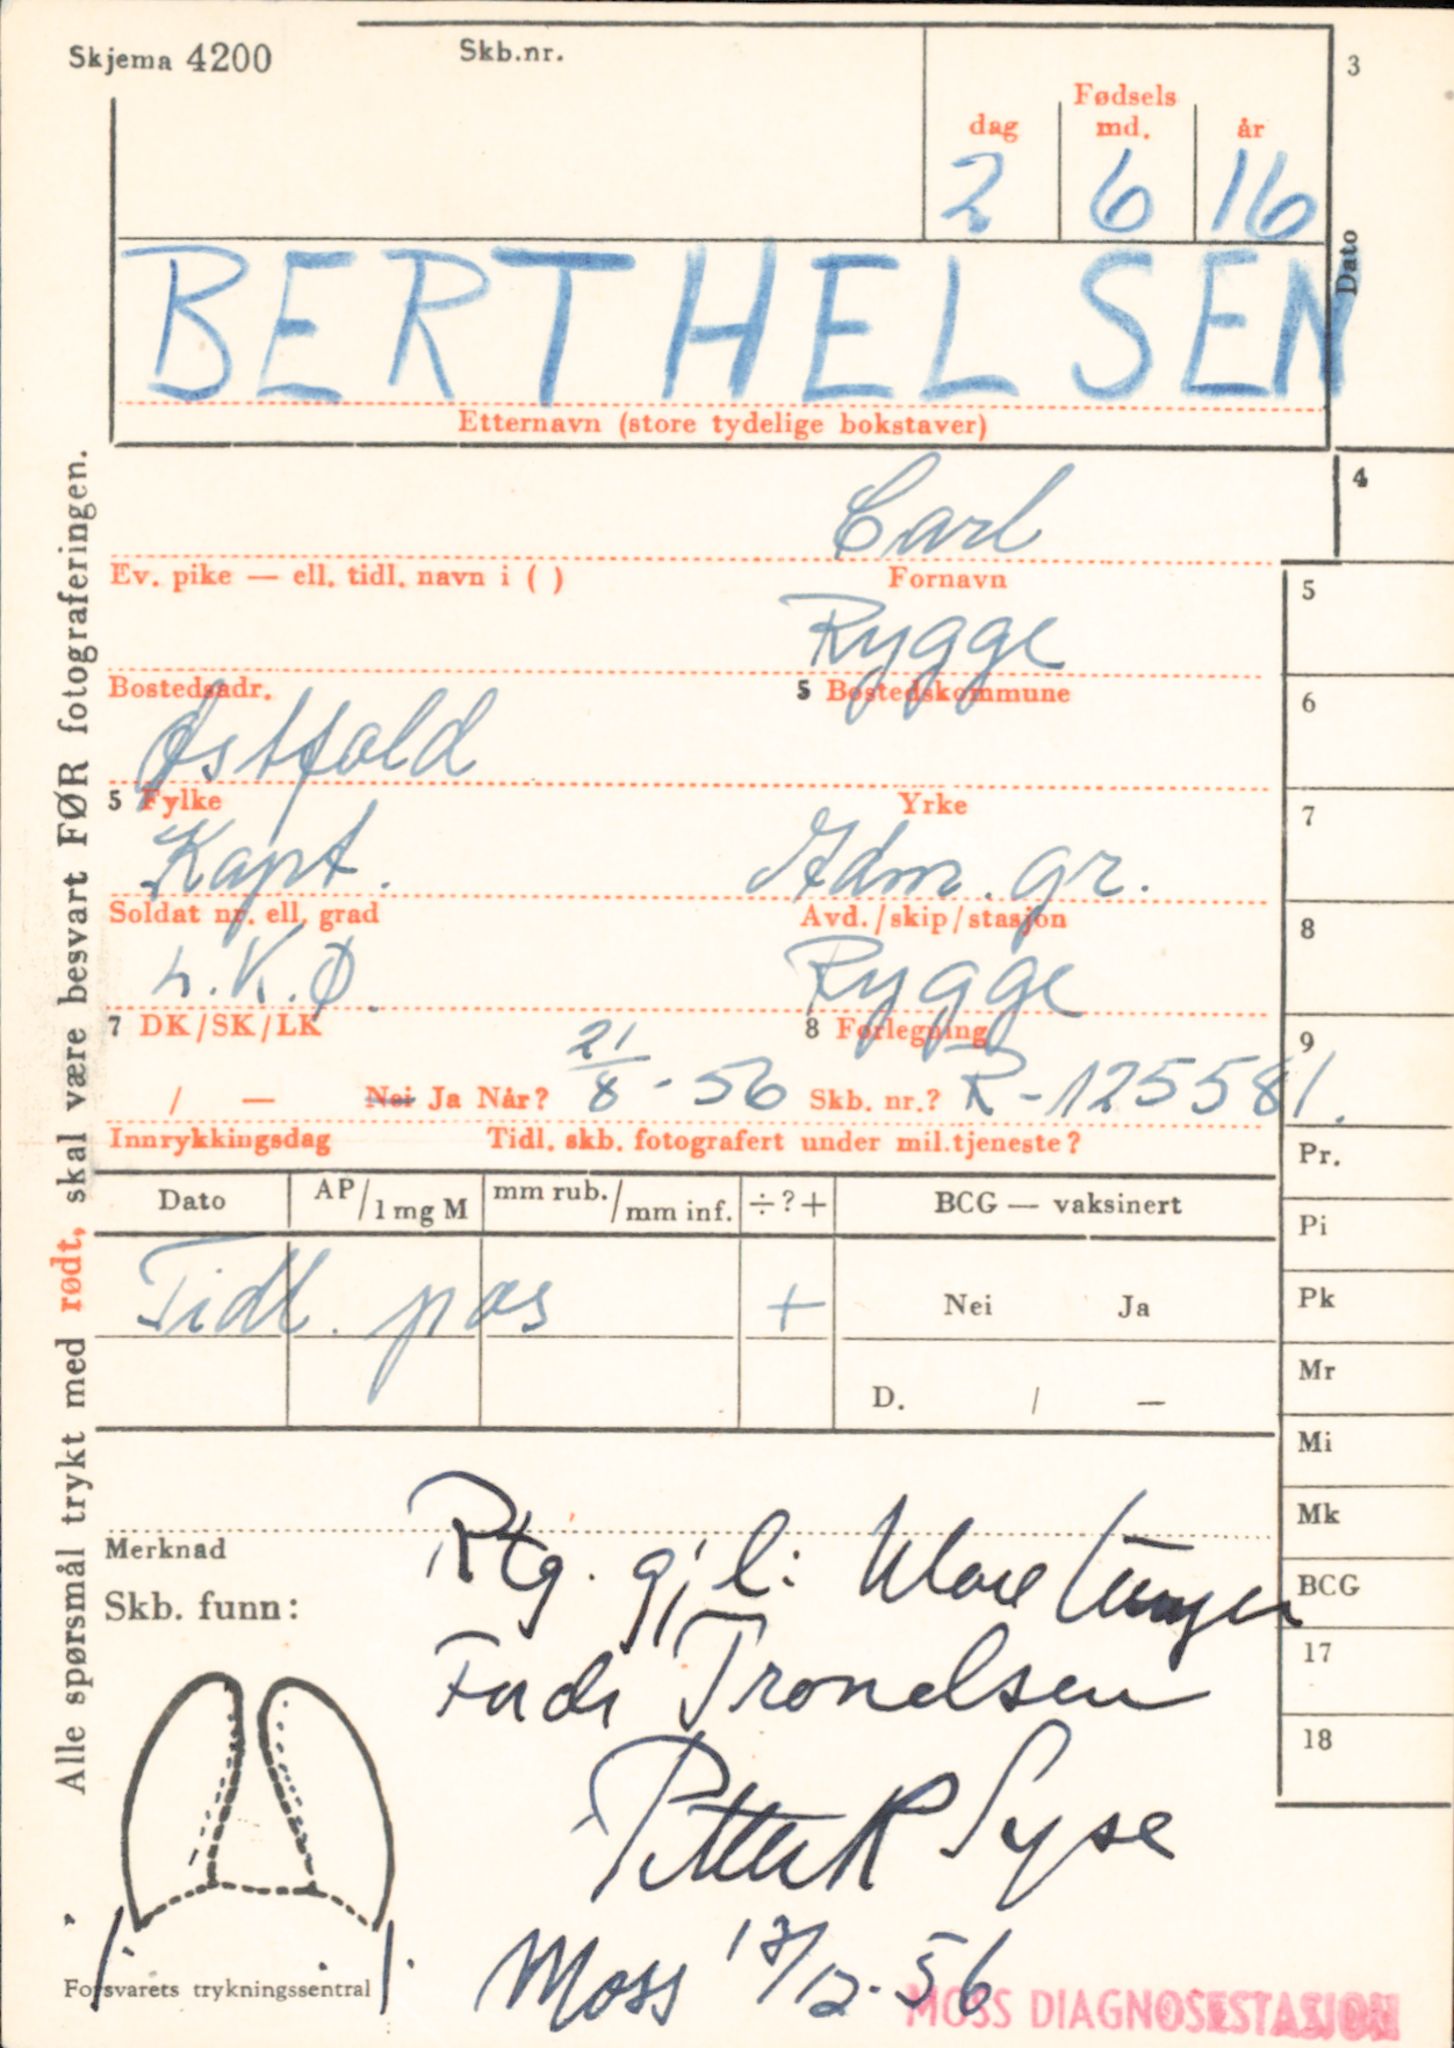 Skjema 4200
Skb.nr.
3
Fødsels
dag md. år
2 6 16
Dato
BERTHELSEN
Etternavn (store tydelige bokstaver)
4
Carl
Ev. pike — ell. tidl. navn i ( ) Fornavn
5
Rygge
Bostedsadr. 5 Bostedskommune
6
Østfold
5 Fylke Yrke
7
Kapt. Adm. gr.
Soldat nr. ell. grad Avd./skip/stasjon
8
L.K.Ø. Rygge
7 DK/SK/LK 8 Forlegning
9
/ — Nei Ja Når? 21/8-56 Skb. nr.? R-125581.
Innrykkingsdag Tidl. skb. fotografert under mil.tjeneste?
Pr.
Dato AP/1 mg M mm rub./mm inf. ÷?+ BCG — vaksinert
Pi
Tidl. pos + Nei Ja
Pk
Mr
D. / —
Mi
Mk
Merknad
Rtg. gj.l: Klare lunger
BCG
Skb. funn:
17
Trondsen
18
Petter K Syse
Moss 18/12-56
MOSS DIAGNOSESTASJON
Forsvarets trykningssentral
Alle spørsmål trykt med rødt, skal være besvart FØR fotograferingen.